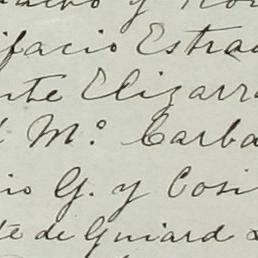 y
ifacio Estrad
nte Elizarr
l M.º Carba
io G. y Cosi
te de Guiard